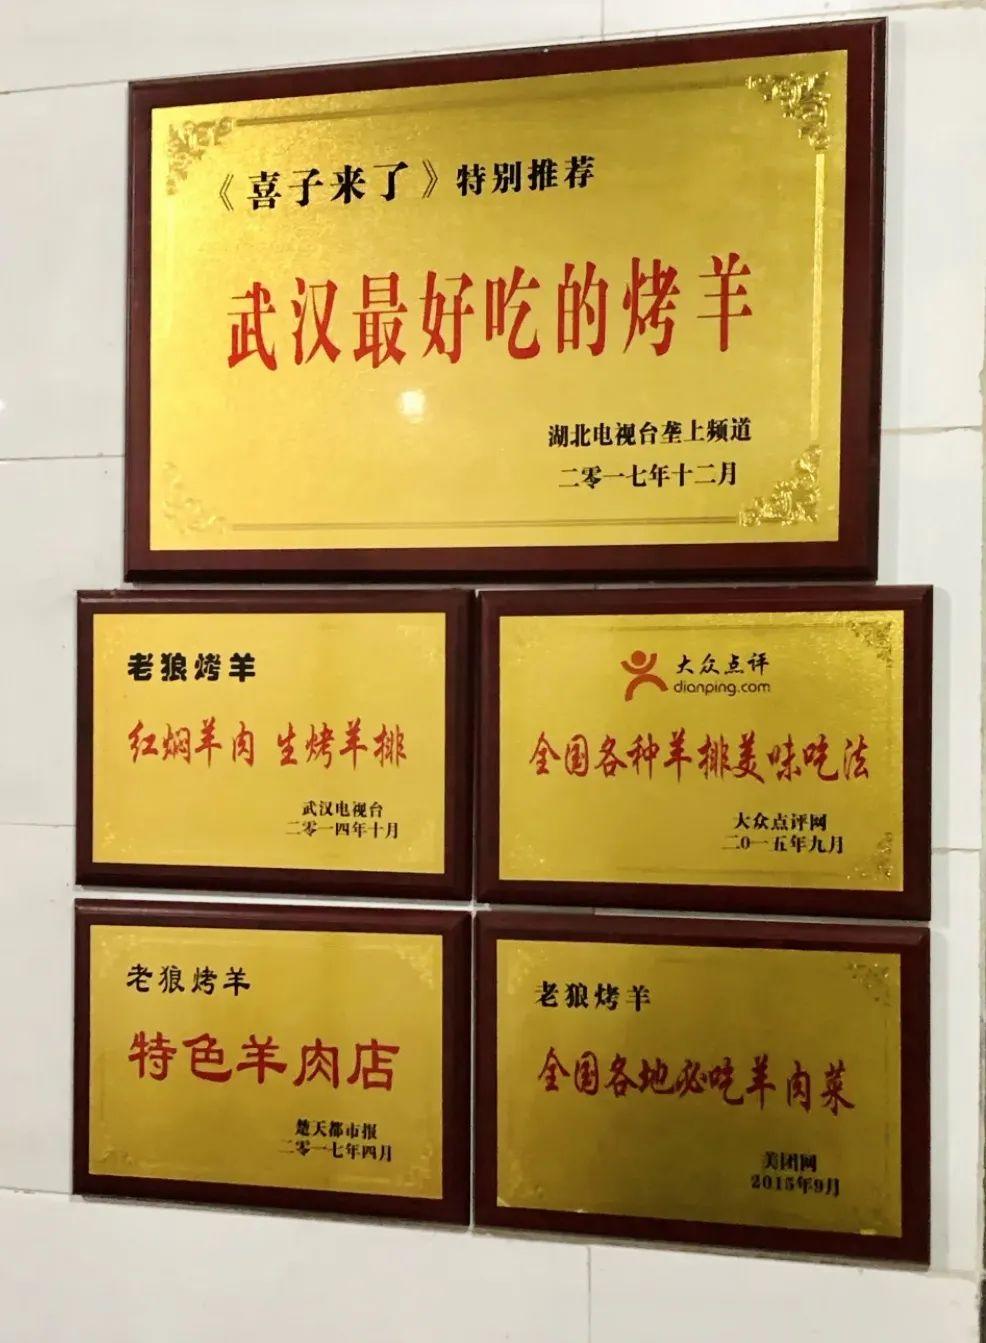 《喜子来了》特别推荐
武汉最好吃的烤羊
湖北电视台垄上频道
二零一七年十二月
老狼烤羊
红焖羊肉 生烤羊排
武汉电视台
二零一四年十月
大众点评
dianping.com
全国各种羊排美味吃法
大众点评网
二0一五年九月
老狼烤羊
特色羊肉店
楚天都市报
二零一七年四月
老狼烤羊
全国各地必吃羊肉菜
美团网
2015年9月